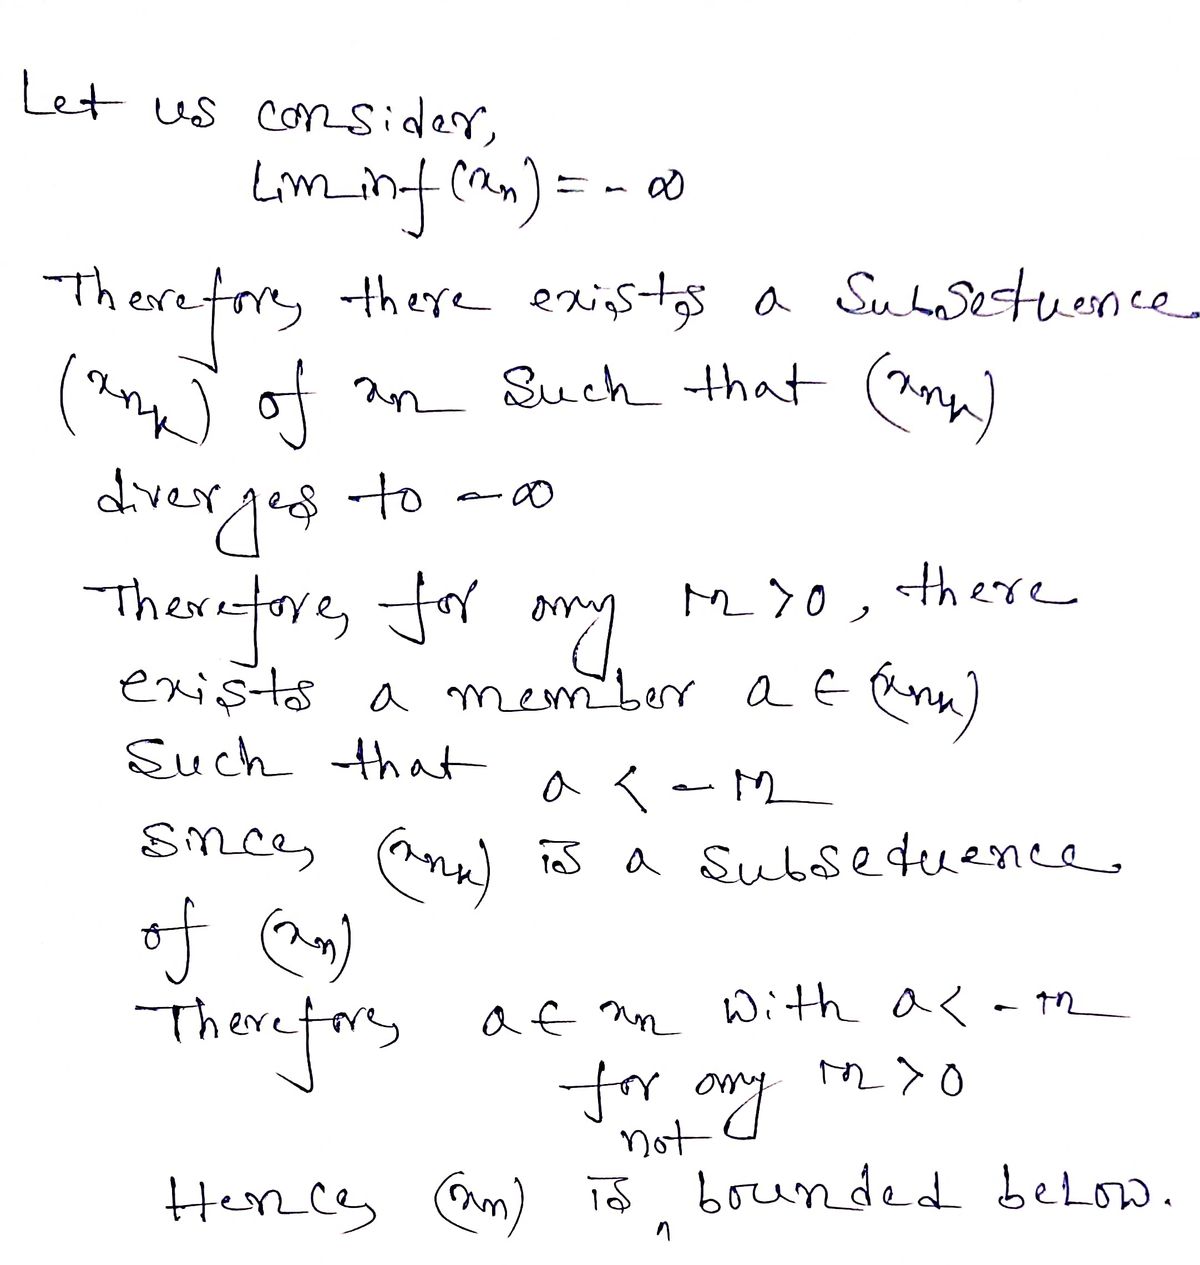 Let us consider,
Lim inf (xn) = - ∞
Therefore, there exists a Subsequence
(xnk) of xn Such that (xnk)
diverges to - ∞
Therefore, for any m > 0, there
exists a member a ∈ (xnk)
Such that a < - m
Since, (xnk) is a Subsequence
of (xn)
Therefore, a ∈ xn With a < - m
for any m > 0
Hence, (xn) is not bounded below.